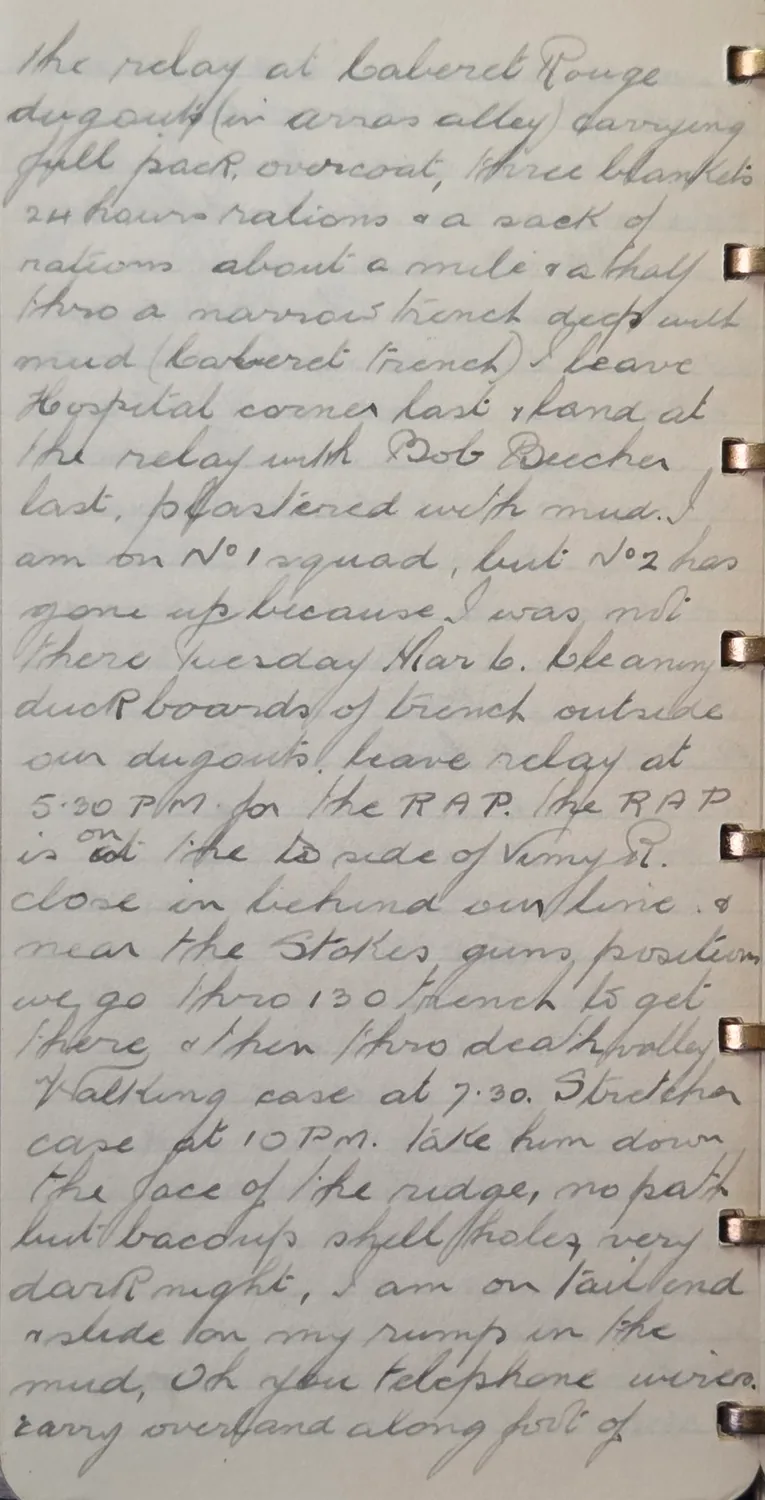 the relay at Caberet Rouge
dugouts (in arras alley) carrying
full pack, overcoat, three blankets
24 hours rations & a sack of
rations about a mile & a half
thro a narrow trench deep with
mud (Caberet trench) I leave
Hospital corner last & land at
the relay with Bob Beecher
last, plastered with mud. I
am on No 1 squad, but No 2 has
gone up because I was not
there Tuesday Mar 6. Cleaning
duckboards of trench outside
our dugouts. leave relay at
5.30 PM. for the RAP. the RAP
is on the side of Vimy R.
close in behind our line. &
near the Stokes guns positions
we go thro 130 trench to get
there & then thro death valley
Walking case at 7.30. Stretcher
case at 10 PM. Take him down
the face of the ridge, no path
but shell holes, very
dark night, I am on tail end
& slide on my rump in the
mud, Oh you telephone wires.
carry overland along foot of